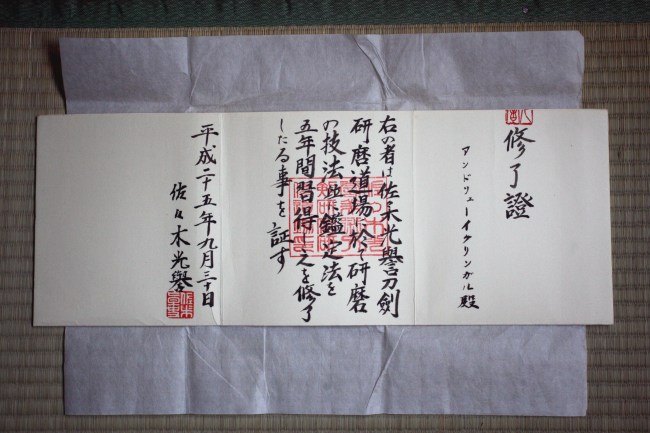 修了證
アンドリューイクリンガル殿
右の者は佐々木光譽刀劍
研磨道場に於て研磨
の技法並鑑定法を
五年間習得し之を修了
したる事を証す
平成二十五年九月三十日
佐々木光譽